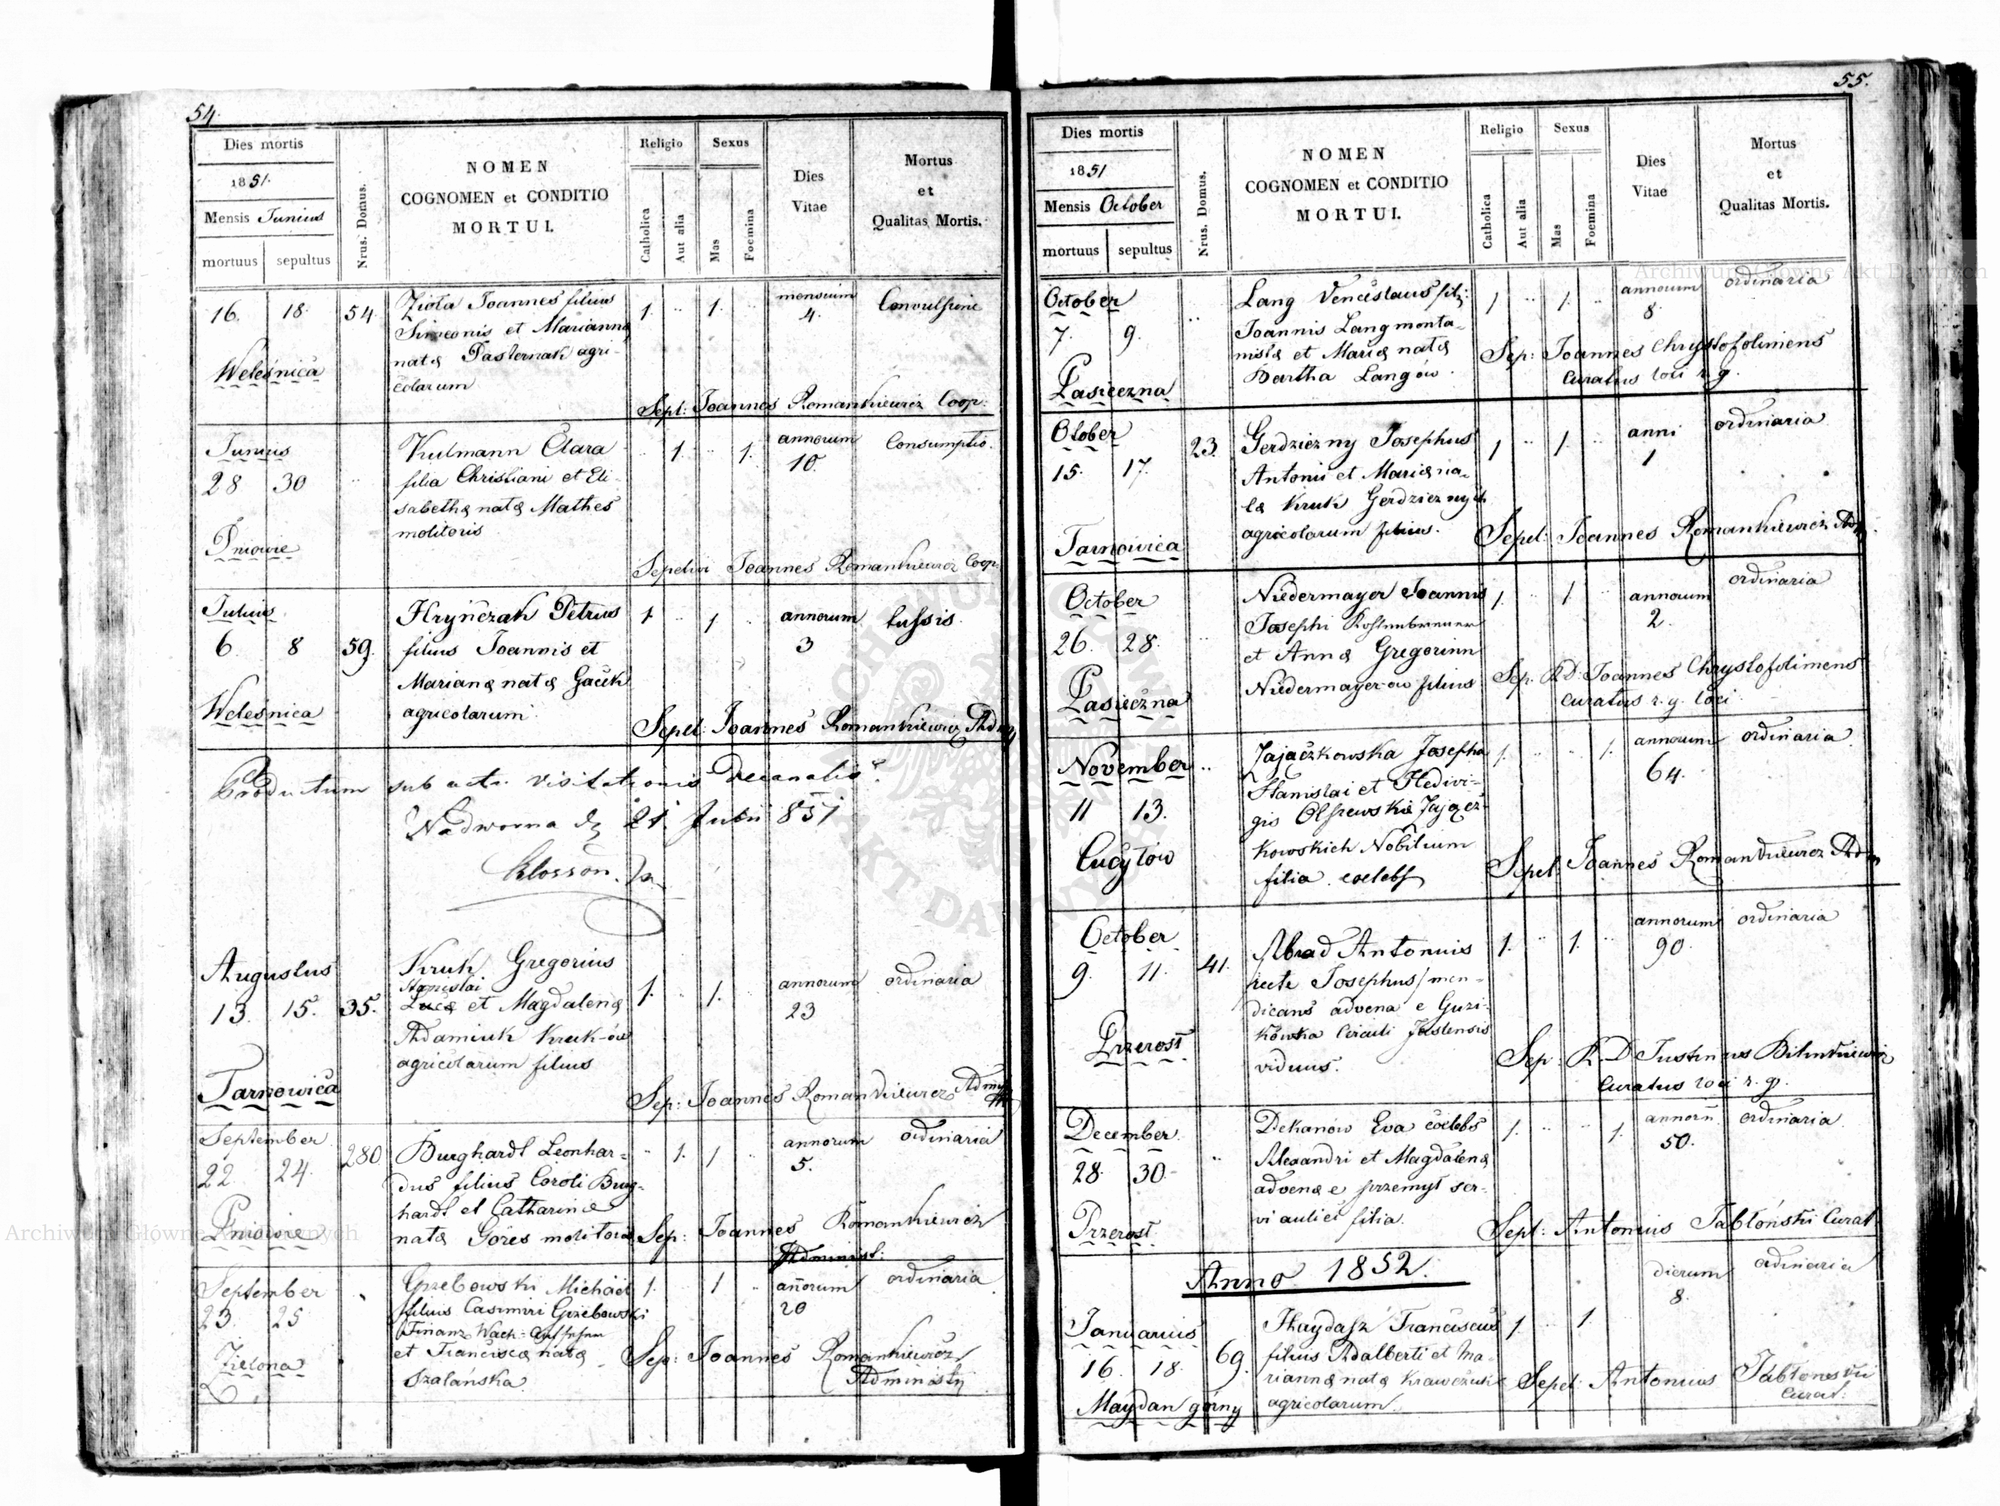 54.
Dies mortis
1851.
Mensis Junius
mortuus sepultus
Nrus. Domus.
NOMEN
COGNOMEN et CONDITIO
MORTUI.
Religio
Catholica
Aut alia
Sexus
Mas
Foemina
Dies
Vitae
Mortus
et
Qualitas Mortis.
16. 18. 54.
Welesnica
Ziola Joannes filius
Simeonis et Marianna
nata Pasternak agri-
colarum
1. " 1. "
mensium
4.
Convulsione
Sept: Joannes Romankiewicz Coop:
Junius
28 30
Pniowie
Kulmann Clara
filia Christiani et Eli-
sabetha nata Mathes
molitoris
" 1. " 1.
annorum
10.
Consumptio.
Sepelivi Joannes Romankiewicz Coop.
Julius
6. 8 59.
Welesnica
Hryńczak Petrus
filius Joannis et
Mariana nata Gacek
agricolarum
1 " 1 "
annorum
3
tussis.
Sepel: Joannes Romankiewicz Adm
Productum sub actu visitationis Decanalis.
Nadworna d 21 Julii 851
Augustus
13. 15. 35.
Tarnowica
Kruk Gregorius
Luca et Magdalena
Adamiuk Kruk-ów
agricolarum filius
1. " 1. "
annorum
23
ordinaria
Sep: Joannes Romankiewicz Adm
September
22. 24. 280
Pniowie
Burghardt Leonhar-
dus filius Caroli Burg-
hardt et Catharina
nata Göres molitoris
" 1. 1 "
annorum
5.
ordinaria
Sep: Joannes Romankiewicz
Administ:
September
23. 25
Zielona
Grzebowski Michael
filius Casimiri Grzebowski
Finanz Wach-Aufseher
et Francisca nata
Szalańska
1. " 1 "
annorum
20
ordinaria
Sep: Joannes Romankiewicz
Administ
55.
Dies mortis
1851
Mensis October
mortuus sepultus
Nrus. Domus.
NOMEN
COGNOMEN et CONDITIO
MORTUI.
Religio
Catholica
Aut alia
Sexus
Mas
Foemina
Dies
Vitae
Mortus
et
Qualitas Mortis.
October
7. 9.
Pasieczna
Lang Venceslaus fil:
Joannis Lang monta-
nista et Maria nata
Bartha Langow.
1 " 1. "
annorum
8.
ordinaria
Sep: Joannes Chrystofolimens
Curatus loci r. g.
Otober
15. 17. 23.
Tarnowica
Gerdziezny Josephus
Antonii et Maria na-
ta Kruk Gerdzieznych
agricolarum filius.
1 " 1. "
anni
1
ordinaria
Sepel: Joannes Romankiewicz Adm.
October
26. 28.
Pasieczna
Niedermayer Joannis
Josephi Kohlenbrenner
et Anna Gregorinn
Niedermayer-ow filius
1. " 1 "
annorum
2.
ordinaria
Sep. R.D. Joannes Chrystofolimens
Curatus r. g. loci
November
11 13.
Cucyłów
Zajączkowska Josepha
Stanislai et Hedwi-
gis Olszewskie Zającz-
kowskich Nobilium
filia coelebs
1. " " 1.
annorum
64.
ordinaria
Sepel: Joannes Romankiewicz Adm
October
9. 11. 41.
Przerośl
Abrad Antonius
recte Josephus/ men-
dicans advena e Guzi-
kówka Circuli Jaslensis
viduus.
1. " 1. "
annorum
90.
ordinaria
Sep: R.D Justinus Bilinkiewicz
Curatus loci r. g.
December
28. 30.
Przerośl
Dekanów Eva coelebs
Alexandri et Magdalena
advena e przemyśl ser-
vi aulici filia.
1. " " 1.
annorū
50.
ordinaria
Sept: Antonius Jabłoński Curat
Anno 1852.
Januarius
16. 18. 69.
Maydan górny
Haydasz Franciscus
filius Adalberti et Ma-
rianna nata Krawczuk
agricolarum
1. 1
dierum
8.
ordinaria
Sepel: Antonius Jabłoński
Curat:
Archiwum Główne Akt Dawnych
Archiwum Główne Akt Dawnych
ARCHIWUM GŁÓWNE AKT DAWNYCH